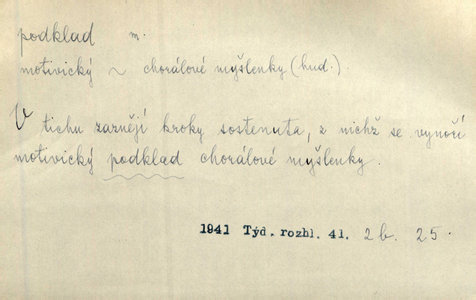 podklad m.
motivický ~ chorálové myšlenky (hud.).
V tichu zaznějí kroky sostenuta, z nichž se vynoří
motivický podklad chorálové myšlenky.
1941 Týd. rozhl. 41. 2b. 25.